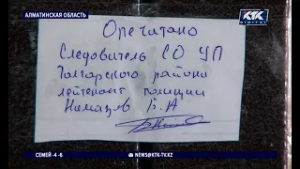 АЛМАТИНСКАЯ ОБЛАСТЬ
КТК
Опечатано
Следователь СО УП
Талгарского района
лейтенант полиции
Б.А
СЕМЕЙ -4 -6
NEWS@KTK-TV.KZ